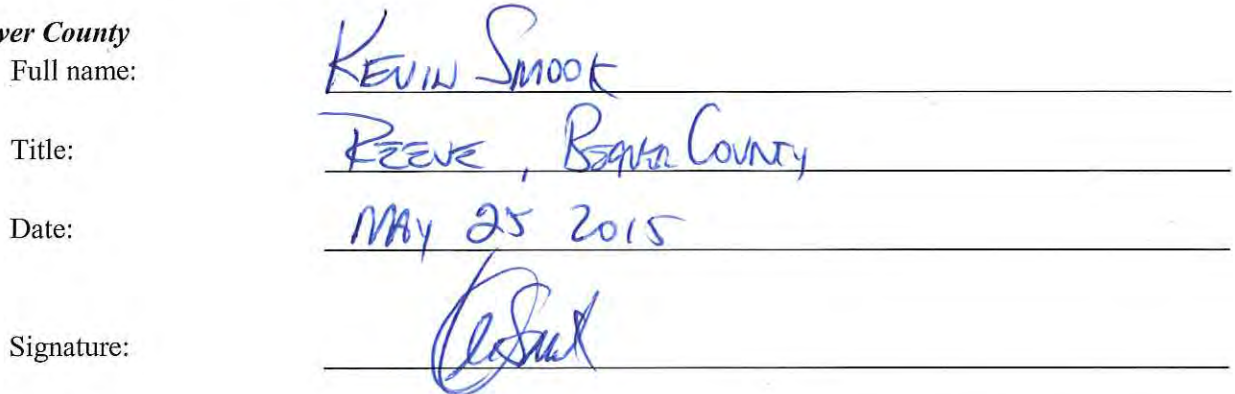 ver County
Full name: KEVIN SMOOK
Title: REEVE, BEAVER COUNTY
Date: MAY 25 2015
Signature: